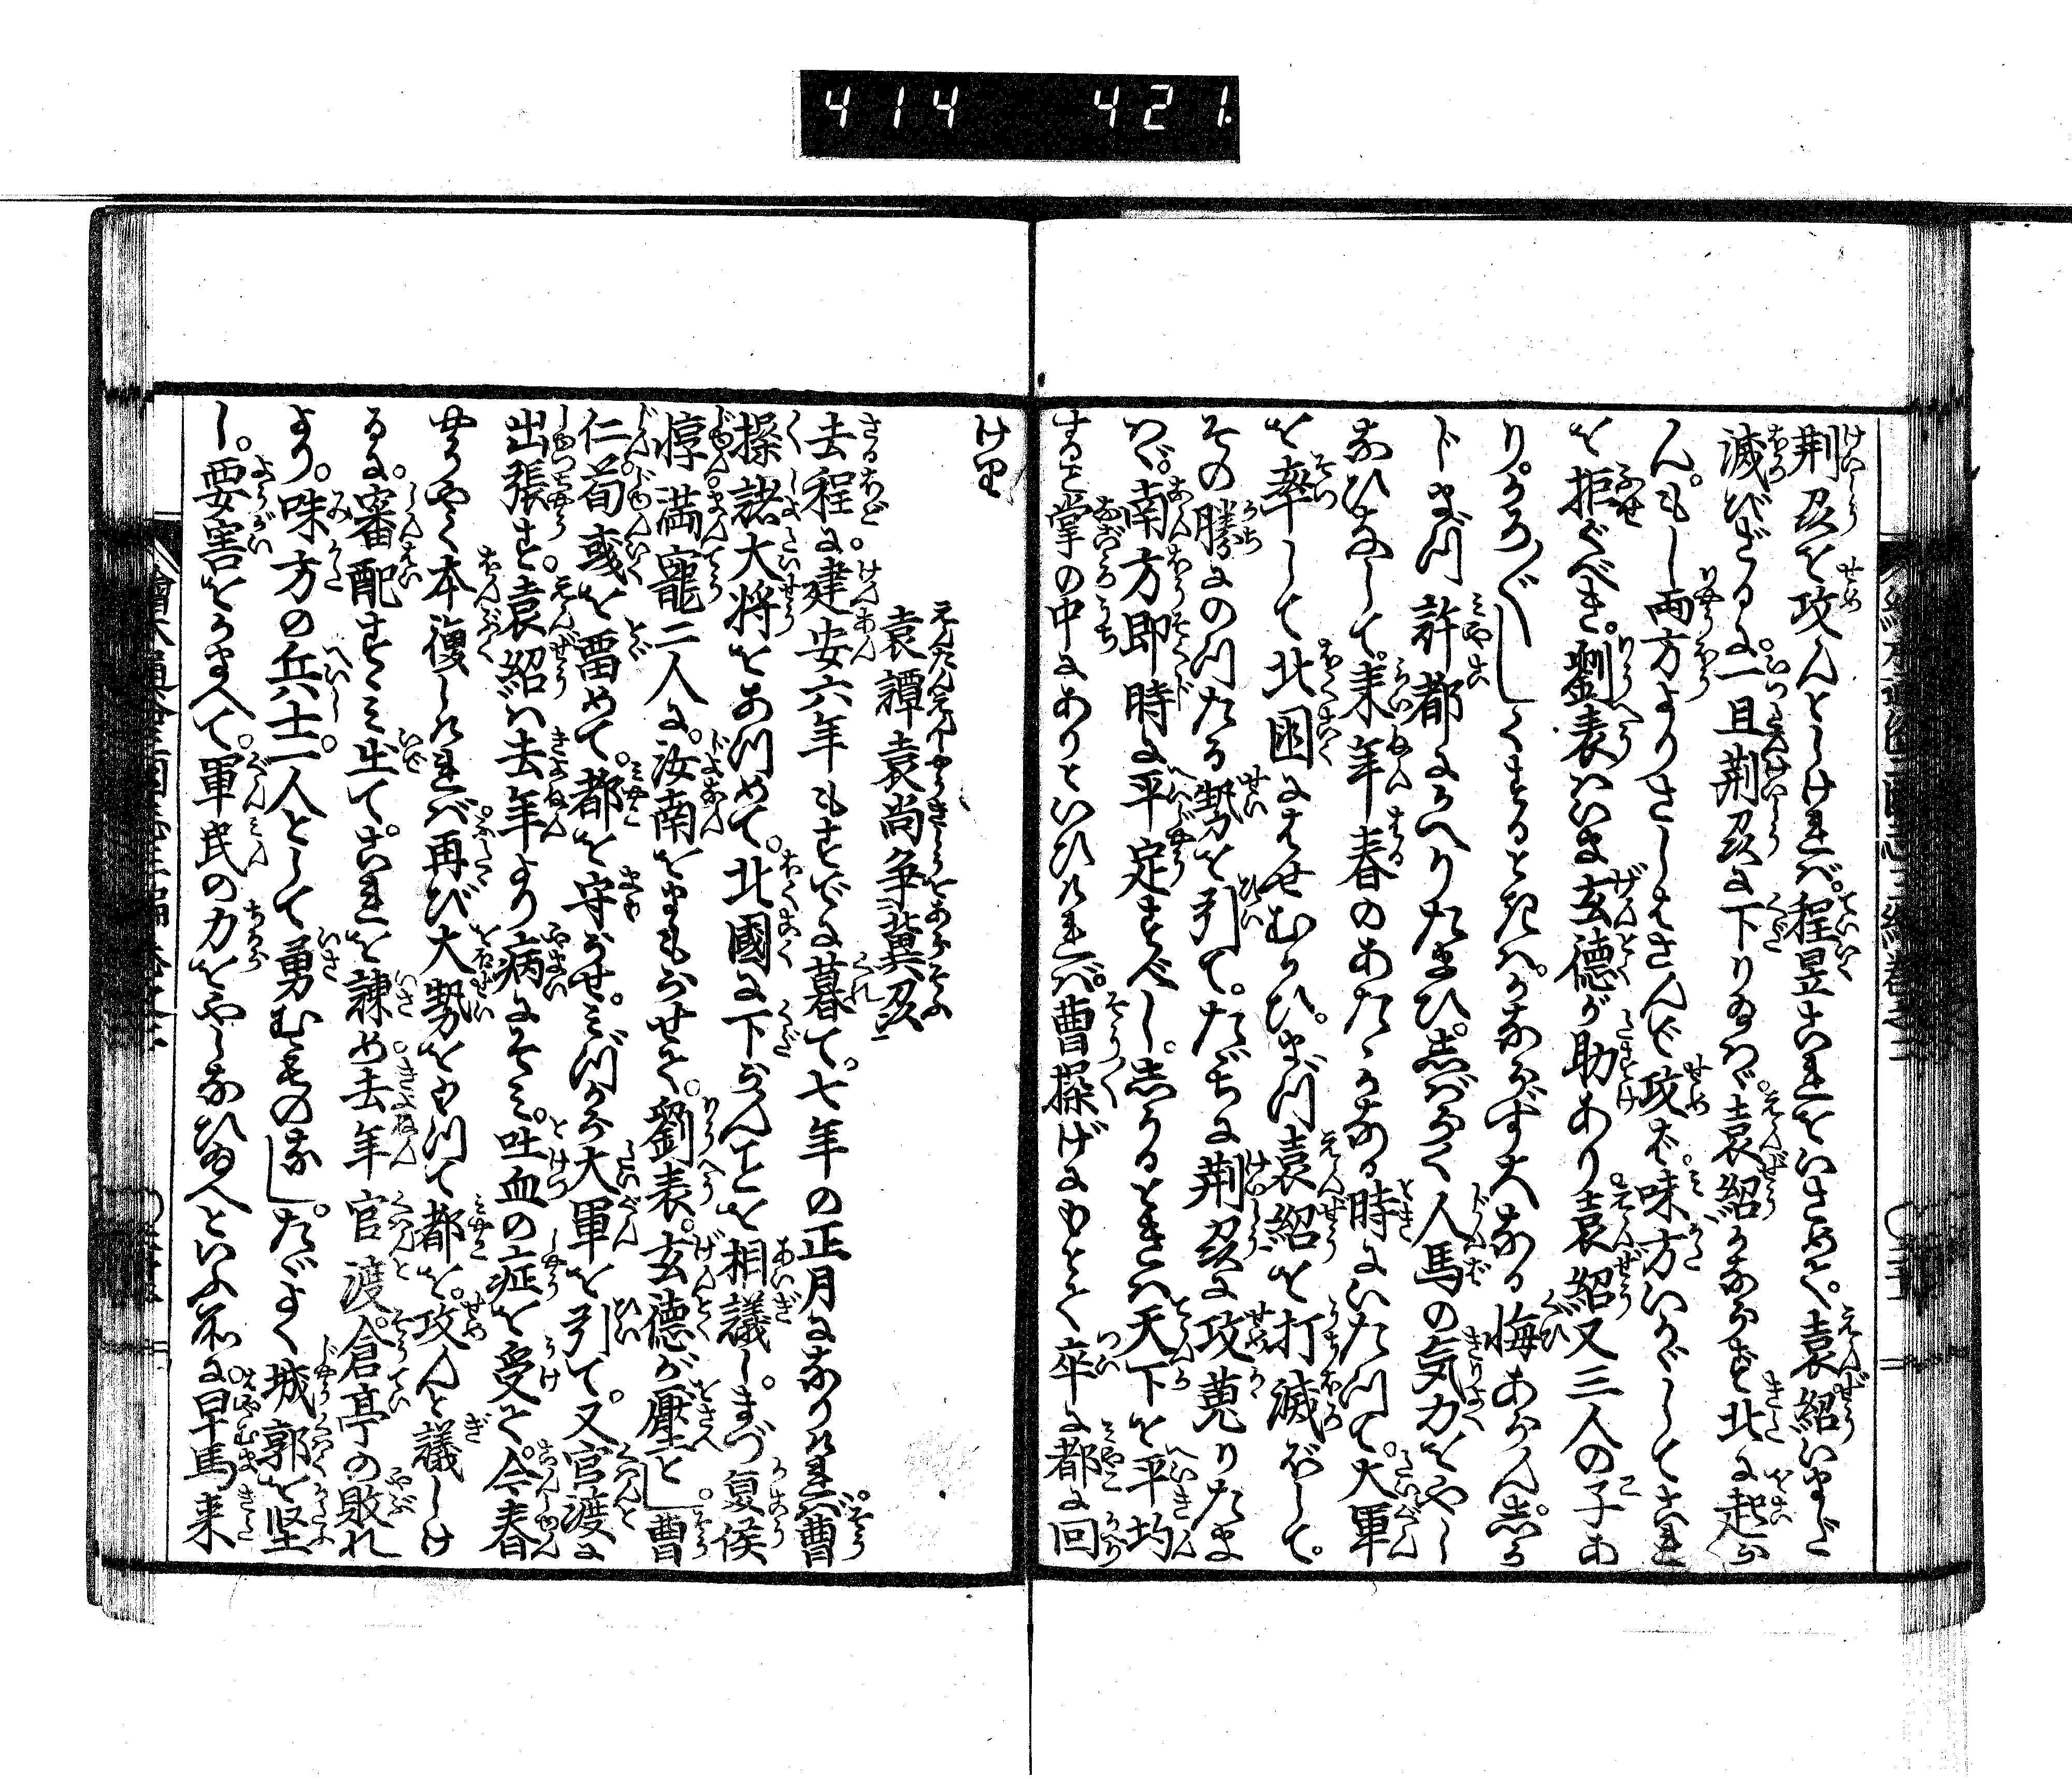 414 421
荆刕を攻んとしければ。程昱これをいさめて。袁紹いまだ
滅びざるに。一旦荆刕に下りゐはゞ。袁紹かならず北に起ら
ん。もし両方よりさしはさんで攻ば。味方いかゞしてこれ
を拒ぐべき。劉表はいま玄徳が助あり。袁紹又三人の子あ
り。かろ〴〵しくするときは。かならず大なる悔あらん。しか
じまづ許都にかへりたまひ。しばらく人馬の気力をやし
なひなして。来年春のあたゝかなる時にいたつて。大軍
を率して北国にはせむかひ。まづ袁紹を打滅ぼして。
その勝にのつたる勢を引て。たゞちに荆刕に攻蒐りたま
はゞ。南方即時に平定すべし。しかるときは天下を平均
すること掌の中にありといひければ。曹操げにもとて卒に都に回
けり
袁譚袁尚争冀刕
去程に。建安六年もすでに暮て。七年の正月になりければ。曹
操諸大将をあつめて。北國に下らんことを相議し。まづ夏侯
惇満寵二人に。汝南をまもらせて。劉表。玄徳が壓とし。曹
仁荀彧を畱めて。都を守らせ。みづから大軍を引て。又官渡に
出張す。袁紹は去年より病にそみ。吐血の症を受て。今春
やうやく本復しければ再び大勢をもつて都を。攻んと議しけ
るに。審配すゝみ出て。これを諫め去年官渡。倉亭の敗れ
より。味方の兵士一人として勇むものなし。たゞよく城郭を堅く
し。要害をかまへて。軍民の力をやしなひゐへといふ處に。早馬来